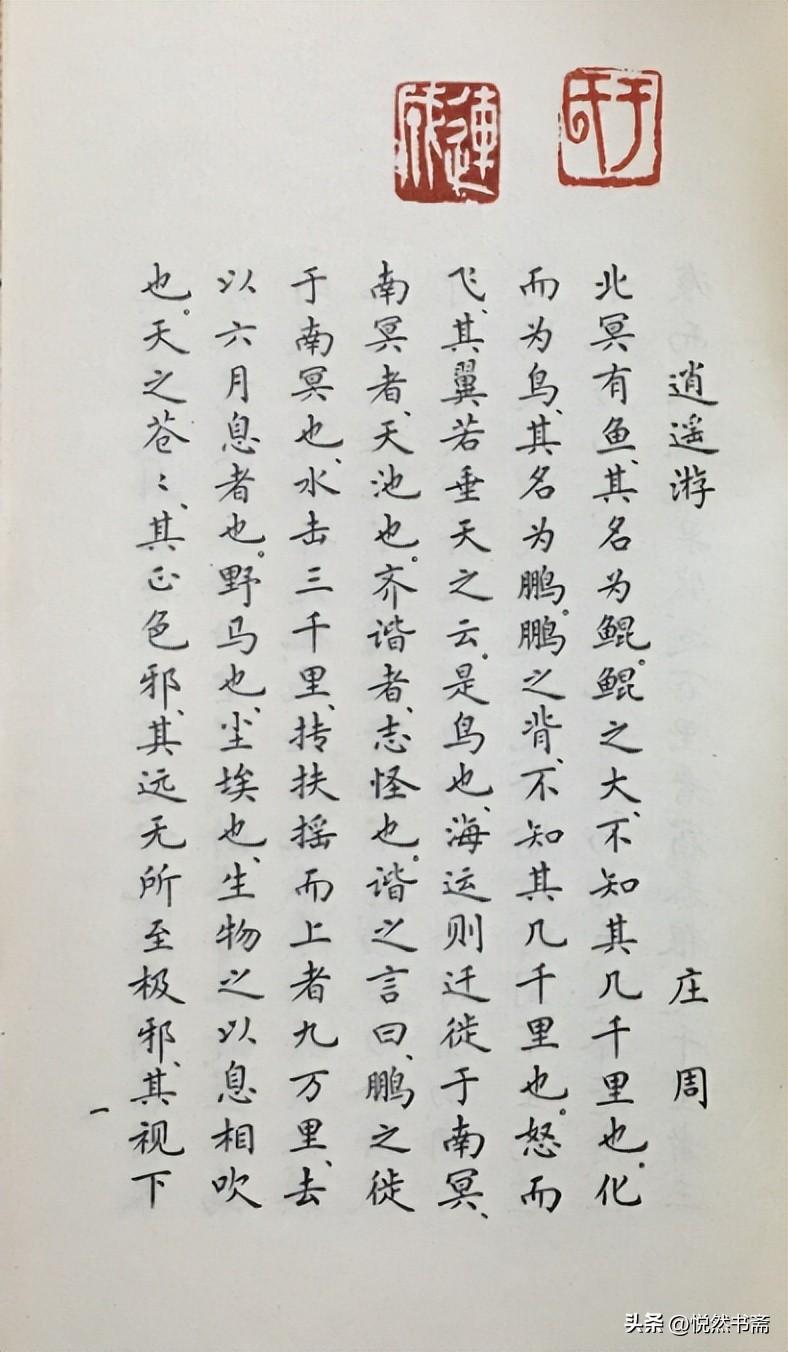 于氏
連成
逍遥游 庄周
北冥有鱼、其名为鲲。鲲之大、不知其几千里也。化
而为鸟、其名为鹏。鹏之背、不知其几千里也。怒而
飞、其翼若垂天之云。是鸟也、海运则迁徙于南冥、
南冥者、天池也。齐谐者、志怪也。谐之言曰、鹏之徙
于南冥也、水击三千里、抟扶摇而上者九万里、去
以六月息者也。野马也、尘埃也、生物之以息相吹
也。天之苍〻、其正色邪、其远无所至极邪、其视下
一
头条 @悦然书斋